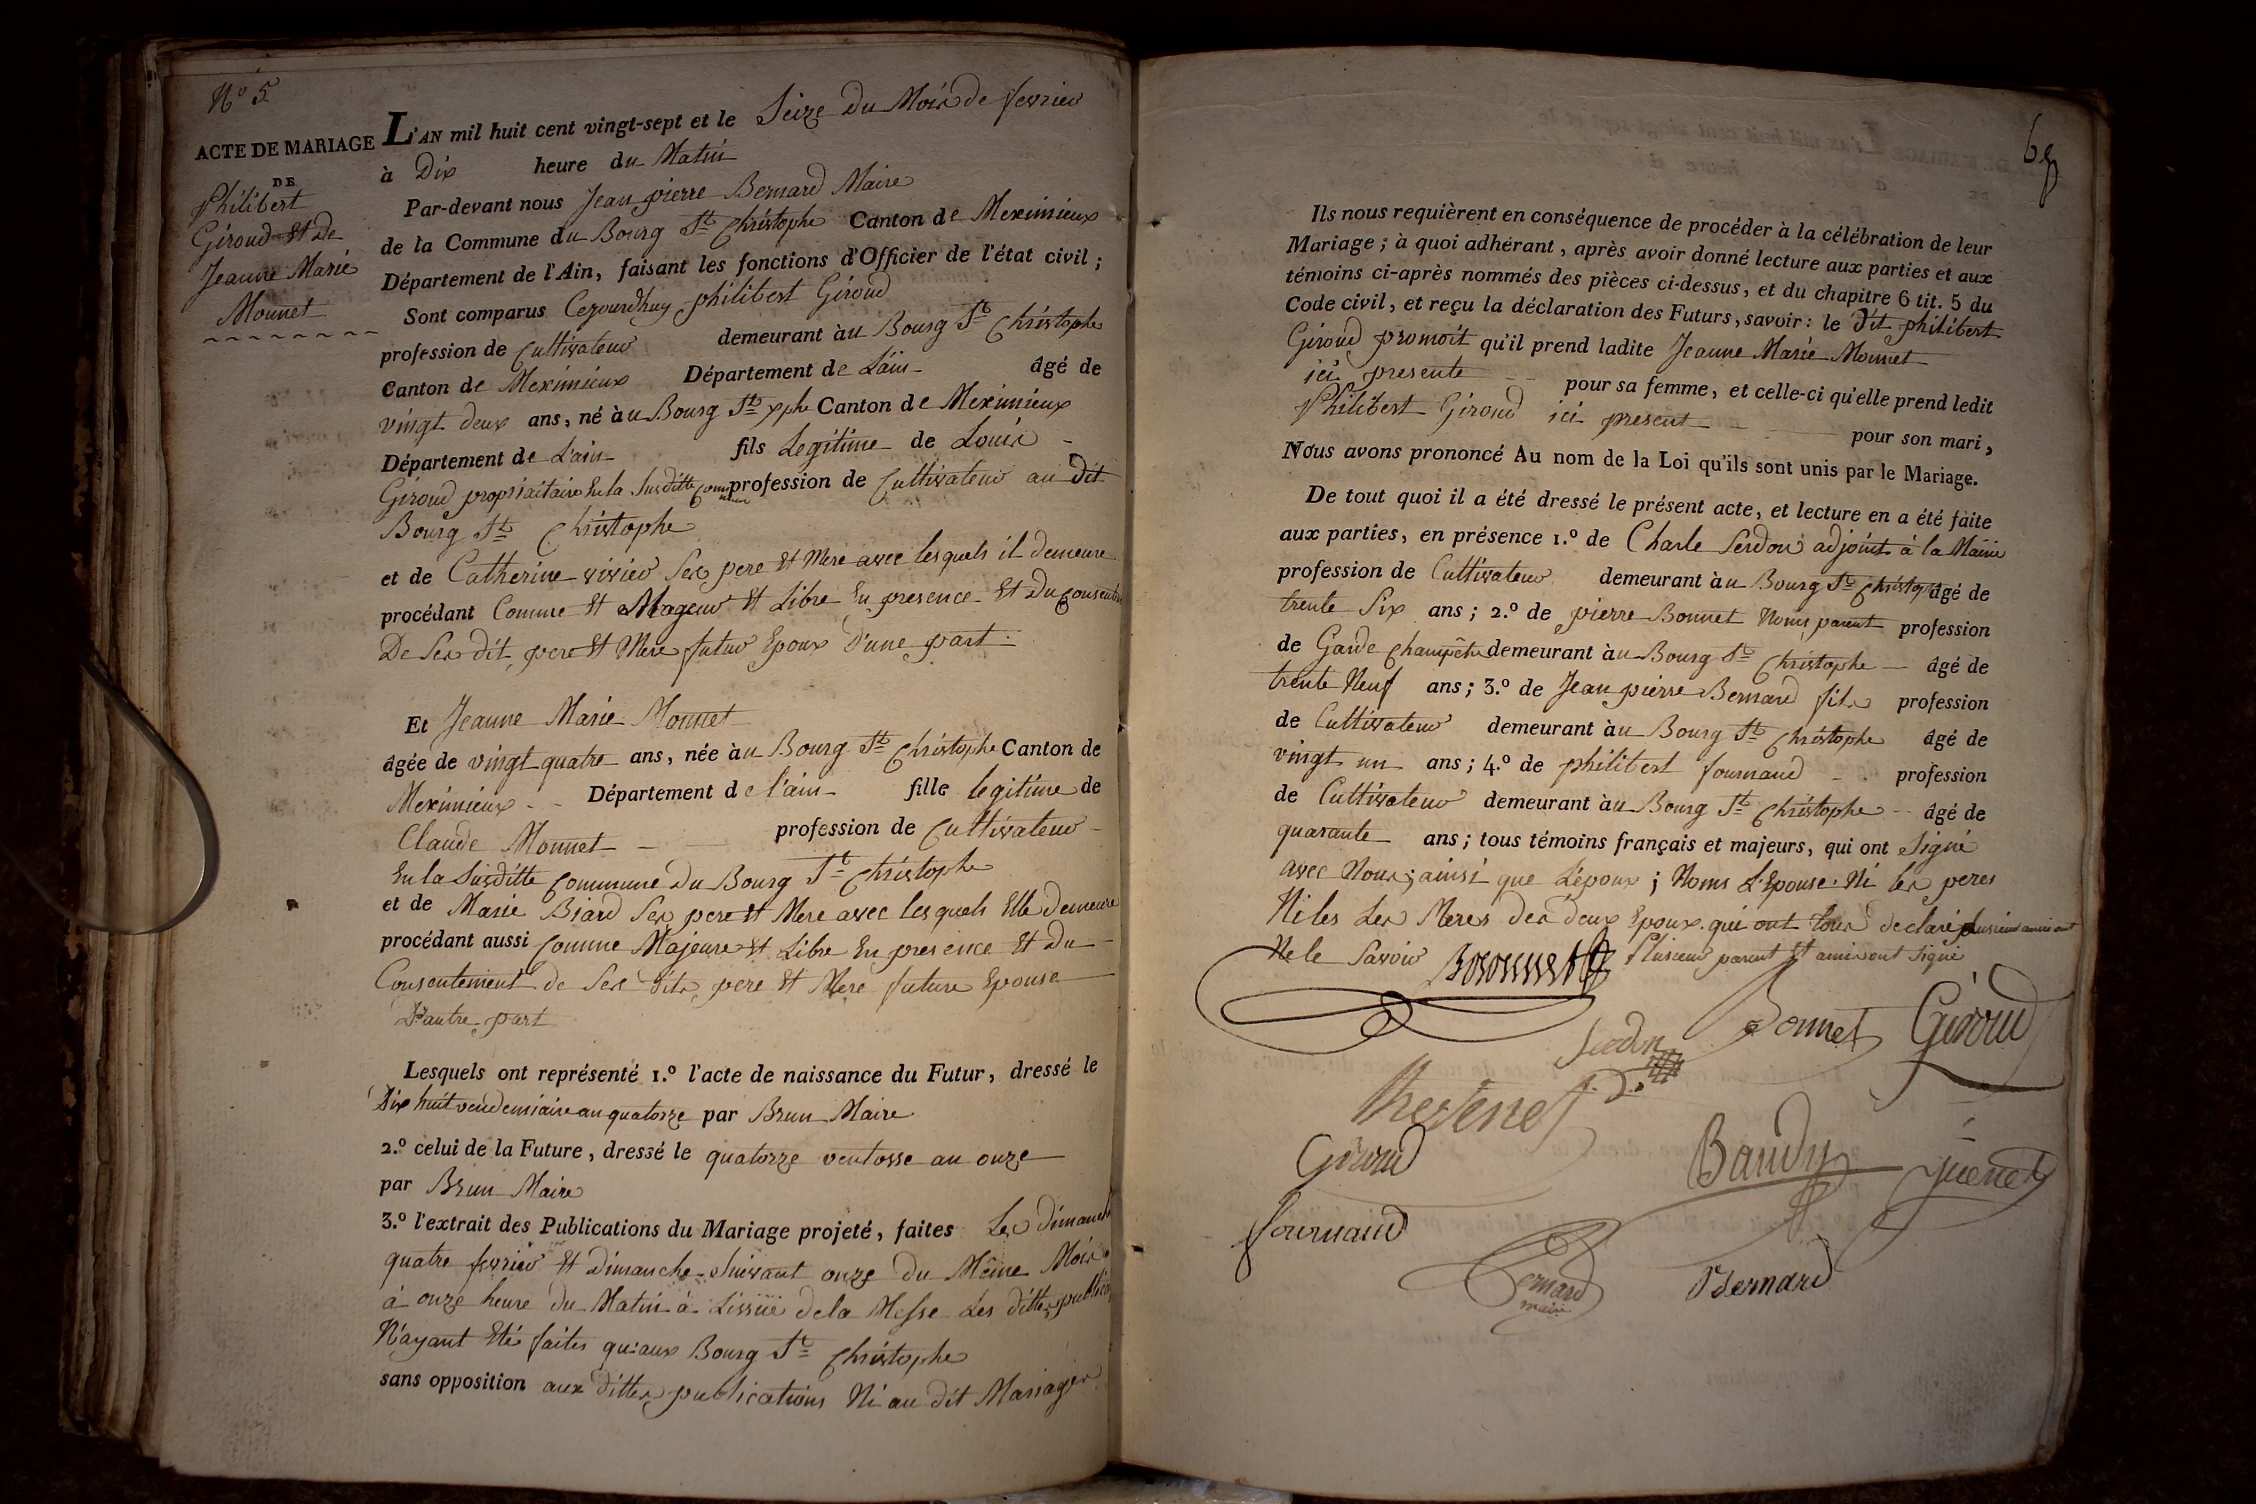 N° 5
ACTE DE MARIAGE
DE
Philibert
Giroud Et De
Jeanne Marie
Monnet
L'AN mil huit cent vingt-sept et le Seize Du Mois de fevrier
à Dix heure du Matin
Par-devant nous Jean pierre Bernard Maire
de la Commune du Bourg St Christophe Canton de Meximieux
Département de l'Ain, faisant les fonctions d'Officier de l'état civil;
Sont comparus Cejourdhuy philibert Giroud
profession de Cultivateur demeurant àu Bourg St Christophe
Canton de Meximieux Département de L'ain âgé de
vingt deux ans, né àu Bourg St xphe Canton de Meximieux
Département de L'ain fils Legitime de Louis
Giroud propriaitaire En la Susditte commune profession de Cultivateur au dit
Bourg St Christophe
et de Catherine vivier Ses pere Et Mere avec lesquels il demeure
procédant Comme Et Mageur Et Libre En presence Et Du
De Ses dit pere Et Mere futur Epoux D'une part
Et Jeanne Marie Monnet
âgée de vingt quatre ans, née àu Bourg St Christophe Canton de
Meximieux Département de l'ain fille legitime de
Claude Monnet profession de Cultivateur
En la Susditte Commune Du Bourg St Christophe
et de Marie Biard Ses pere Et Mere avec lesquels Elle demeure
procédant aussi Comme Majeure Et Libre En presence Et Du
Consentement de Ses dits pere Et Mere future Epouse
D'autre part
Lesquels ont représenté 1.° l'acte de naissance du Futur, dressé le
Dix huit vendemiaire an quatorze par Brun Maire
2.° celui de la Future, dressé le quatorze ventosse an onze
par Brun Maire
3.° l'extrait des Publications du Mariage projeté, faites Les dimanche
quatre fevrier Et Dimanche Suivant onze Du Même Mois
à onze heure Du Matin à Lissüe dela Messe Les dittes
N'ayant Eté faites qu'aux Bourg St Christophe
sans opposition aux dittes publications Ni au dit Mariage
Ils nous requièrent en conséquence de procéder à la célébration de leur
Mariage; à quoi adhérant, après avoir donné lecture aux parties et aux
témoins ci-après nommés des pièces ci-dessus, et du chapitre 6 tit. 5 du
Code civil, et reçu la déclaration des Futurs, savoir: le Dit philibert
Giroud promoit qu'il prend ladite Jeanne Marie Monnet
ici presente pour sa femme, et celle-ci qu'elle prend ledit
Philibert Giroud ici present pour son mari,
Nous avons prononcé Au nom de la Loi qu'ils sont unis par le Mariage.
De tout quoi il a été dressé le présent acte, et lecture en a été faite
aux parties, en présence 1.° de Charle Serdon adjoint à la Mairie
profession de Cultivateur demeurant àu Bourg St Christophe âgé de
trente Six ans; 2.° de pierre Bonnet Noms parent profession
de Garde Champêtre demeurant àu Bourg St Christophe âgé de
trente Neuf ans; 3.° de Jean pierre Bernard fils profession
de Cultivateur demeurant àu Bourg St Christophe âgé de
vingt un ans; 4.° de philibert fournaud profession
de Cultivateur demeurant àu Bourg St Christophe âgé de
quarante ans; tous témoins français et majeurs, qui ont Signé
avec Nous; ainsi que L'époux; Noms L'Epouse Ni les peres
Ni les Les Meres des deux Epoux qui ont tous declaré
Ne le Savoir Plusieur parent Et amis ont Signé
Bonnet
Giroud
Serdon
Giroud
Baudy
fournaud
Bernard
maire
Bernard